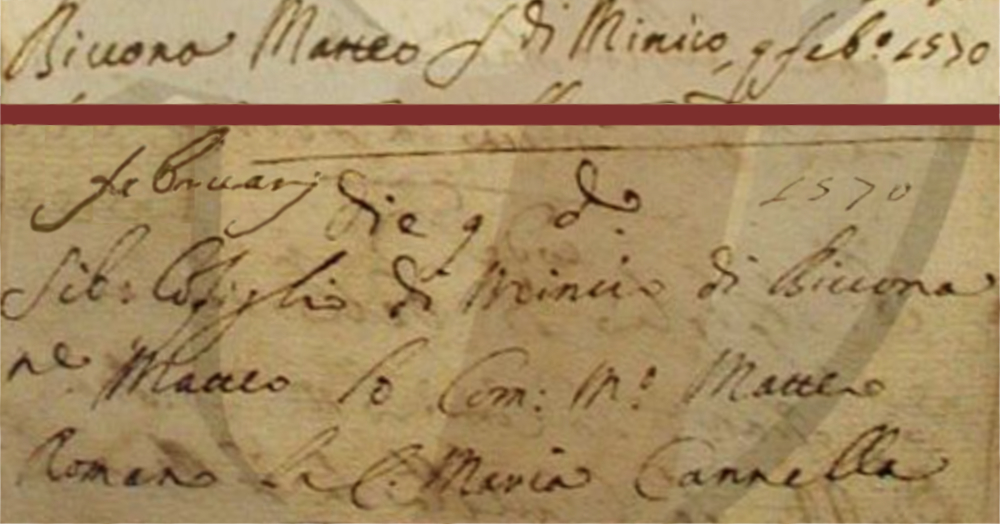 Bivona Matteo f di Minico 9 feb.º 1570
februarij
die 9 d.º 1570
fil.º di Minico di Bivona
n.e Matteo lo Com: M.º Matteo
Romano la C: Maria Cannella